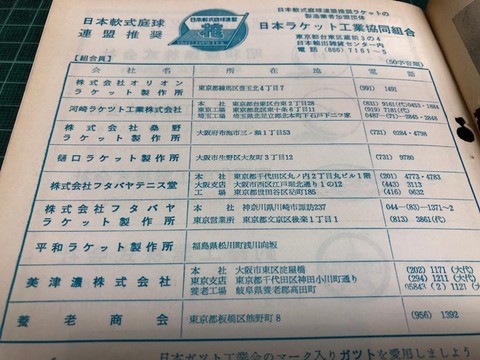 日本軟式庭球
連盟推奨
日本軟式庭球連盟推奨ラケットの
製造業者加盟団体
日本ラケット工業協同組合
東京都台東区蔵前3の4
日本輸出雑貨センター内
電話 (866) 7161~5
【組合員】
(50字音順)
会社名 所在地 電話
株式会社オリオン
ラケット製作所
東京都練馬区豊玉北4丁目7
(991) 1491
河崎ラケット工業株式会社
本社 東京都台東区台東2丁目28
工場 東京都荒川区東日暮里6丁目11
埼玉工場 埼玉県北足立郡北本町下石戸下二ツ家
株式会社桑野
ラケット製作所
大阪府布施市三ノ瀬1丁目53
(731) 0284・4798
樋口ラケット製作所
大阪市生野区大友町3丁目12
(731) 9780
株式会社フタバヤテニス堂
本社 東京都千代田区丸ノ内2丁目丸ビル1階
大阪支店 大阪市西区江戸堀北通り1の12
工場 東京都世田谷区砧町185
(201) 4773・4783
(443) 3113
(416) 0632
株式会社フタバヤ
ラケット製作所
本社 神奈川県川崎市諏訪237
東京営業所 東京都文京区後楽1丁目1
044-(83)-1371~2
(813) 3861(代)
平和ラケット製作所
福島県松川町浅川向坂
美津濃株式会社
本社 大阪市東区淀屋橋
東京支店 東京都千代田区神田小川町通り
養老工場 岐阜県養老郡高田町
(202) 1171 (大代)
(294) 1211 (大代)
養老商会
東京都板橋区熊野町8
(956) 1392
日本ガット工業会のマーク入りガットを愛用しましょう